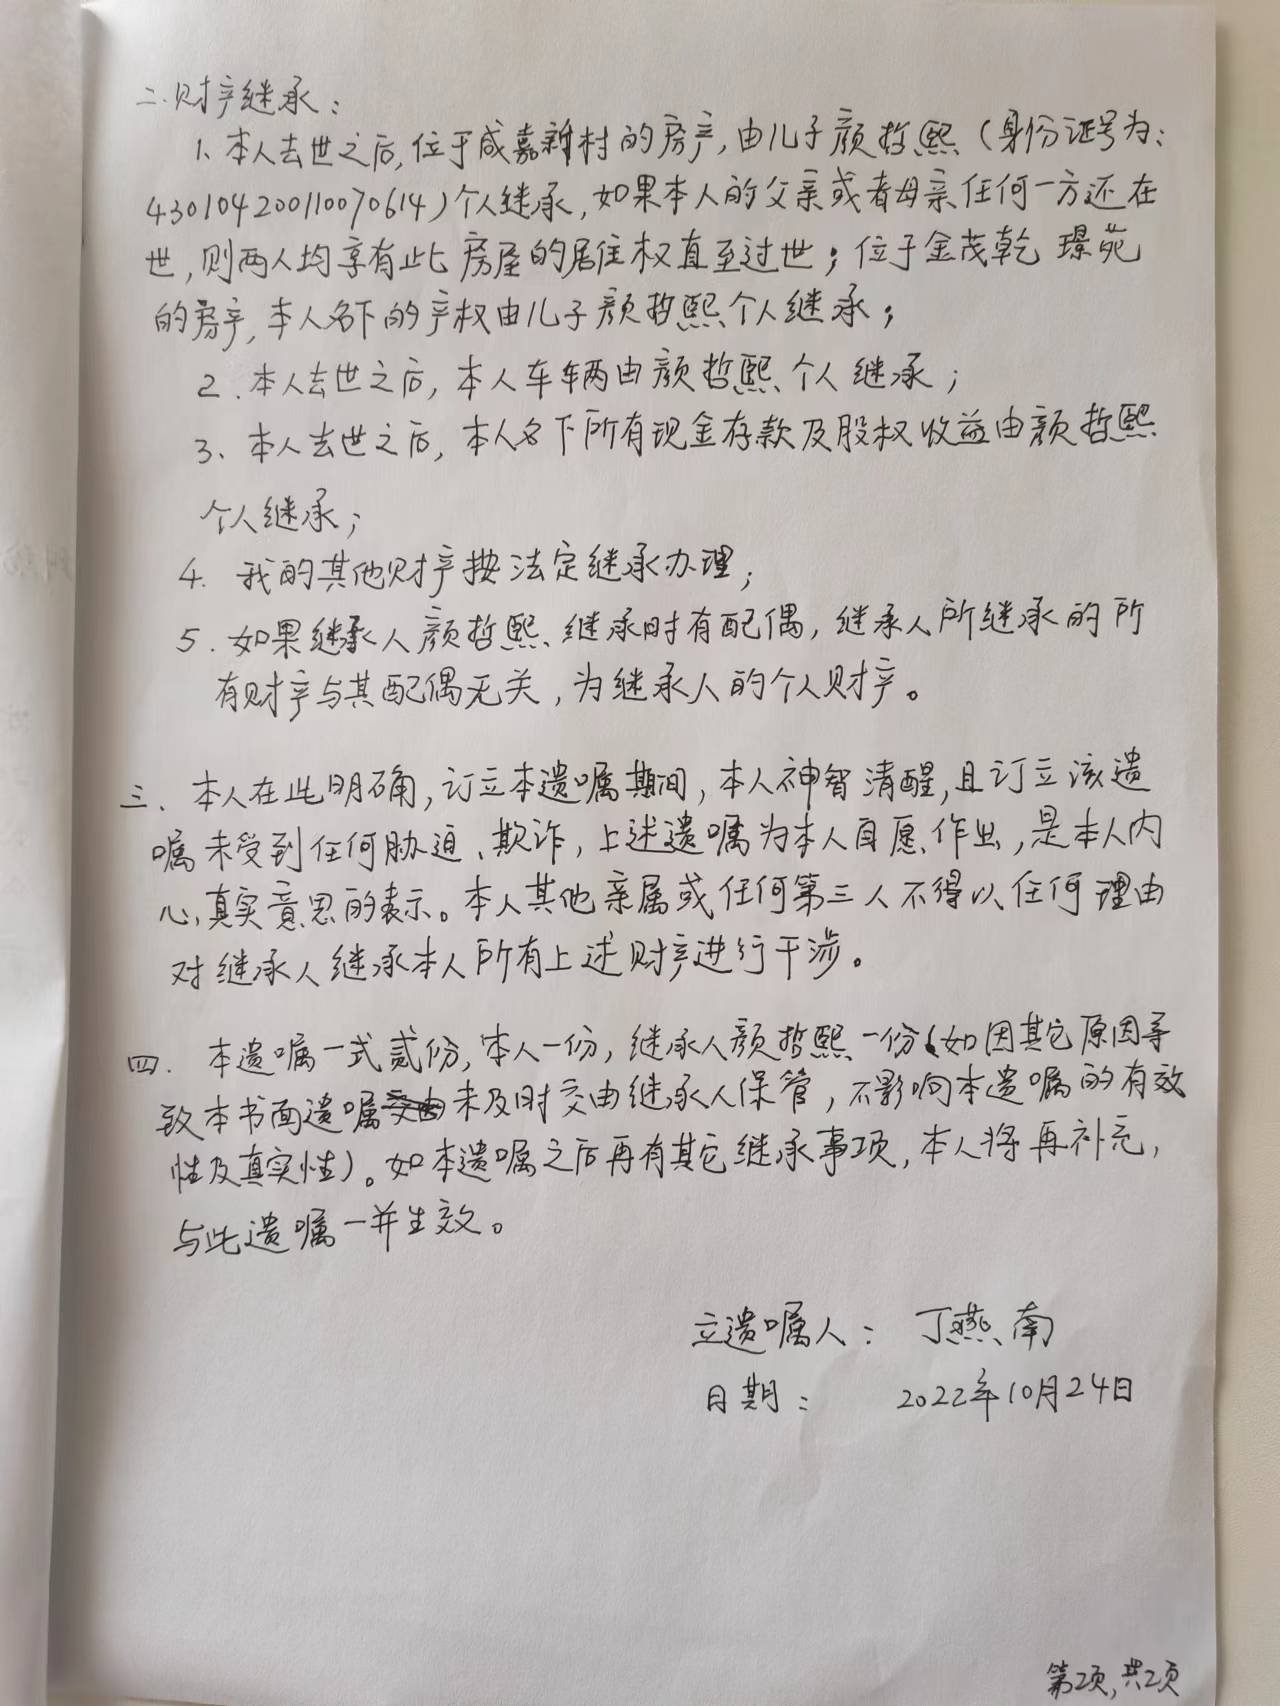 二.财产继承：
1、本人去世之后,位于咸嘉新村的房产,由儿子颜哲熙（身份证号为：
430104200110070614）个人继承,如果本人的父亲或者母亲任何一方还在
世,则两人均享有此房屋的居住权直至过世；位于金茂乾璟苑
的房产,本人名下的产权由儿子颜哲熙个人继承；
2.本人去世之后,本人车辆由颜哲熙个人继承；
3、本人去世之后,本人名下所有现金存款及股权收益由颜哲熙
个人继承；
4.我的其他财产按法定继承办理；
5.如果继承人颜哲熙继承时有配偶,继承人所继承的所
有财产与其配偶无关,为继承人的个人财产。
三.本人在此明确,订立本遗嘱期间,本人神智清醒,且订立该遗
嘱未受到任何胁迫、欺诈,上述遗嘱为本人自愿作出,是本人内
心真实意思的表示。本人其他亲属或任何第三人不得以任何理由
对继承人继承本人所有上述财产进行干涉。
四.本遗嘱一式贰份,本人一份,继承人颜哲熙一份(如因其它原因导
致本书面遗嘱未及时交由继承人保管,不影响本遗嘱的有效
性及真实性)。如本遗嘱之后再有其它继承事项,本人将再补充,
与此遗嘱一并生效。
立遗嘱人：丁燕南
日期：2022年10月24日
第2页,共2页